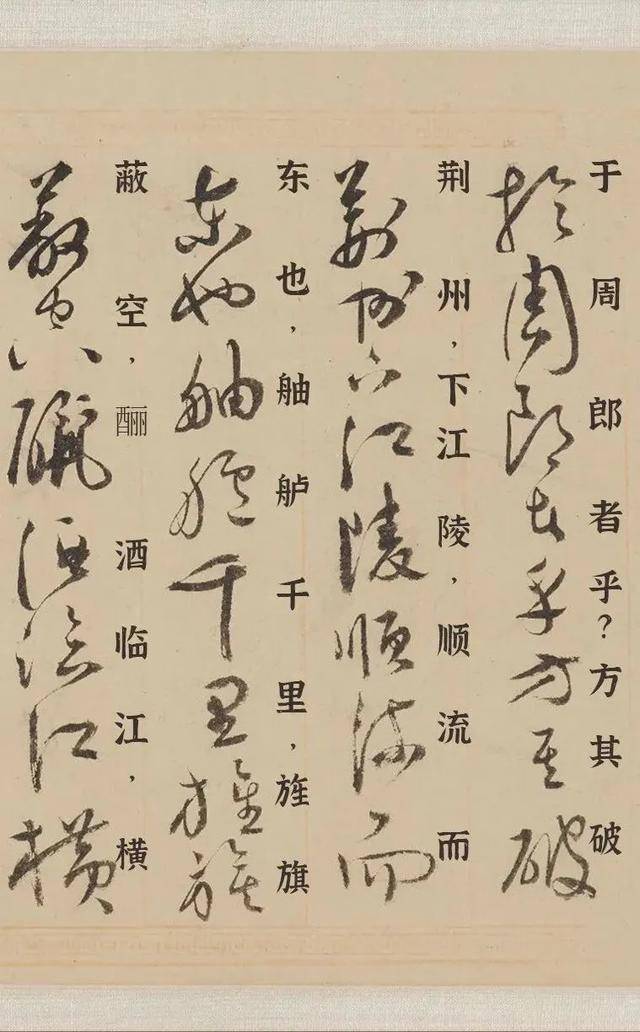 于周郎者乎?方其破
於周郎者乎方其破
荆州,下江陵,顺流而
荆州下江陵順流而
东也,舳舻千里,旌旗
東也舳艫千里旌旗
蔽空,酾酒临江,横
蔽空釃酒臨江橫